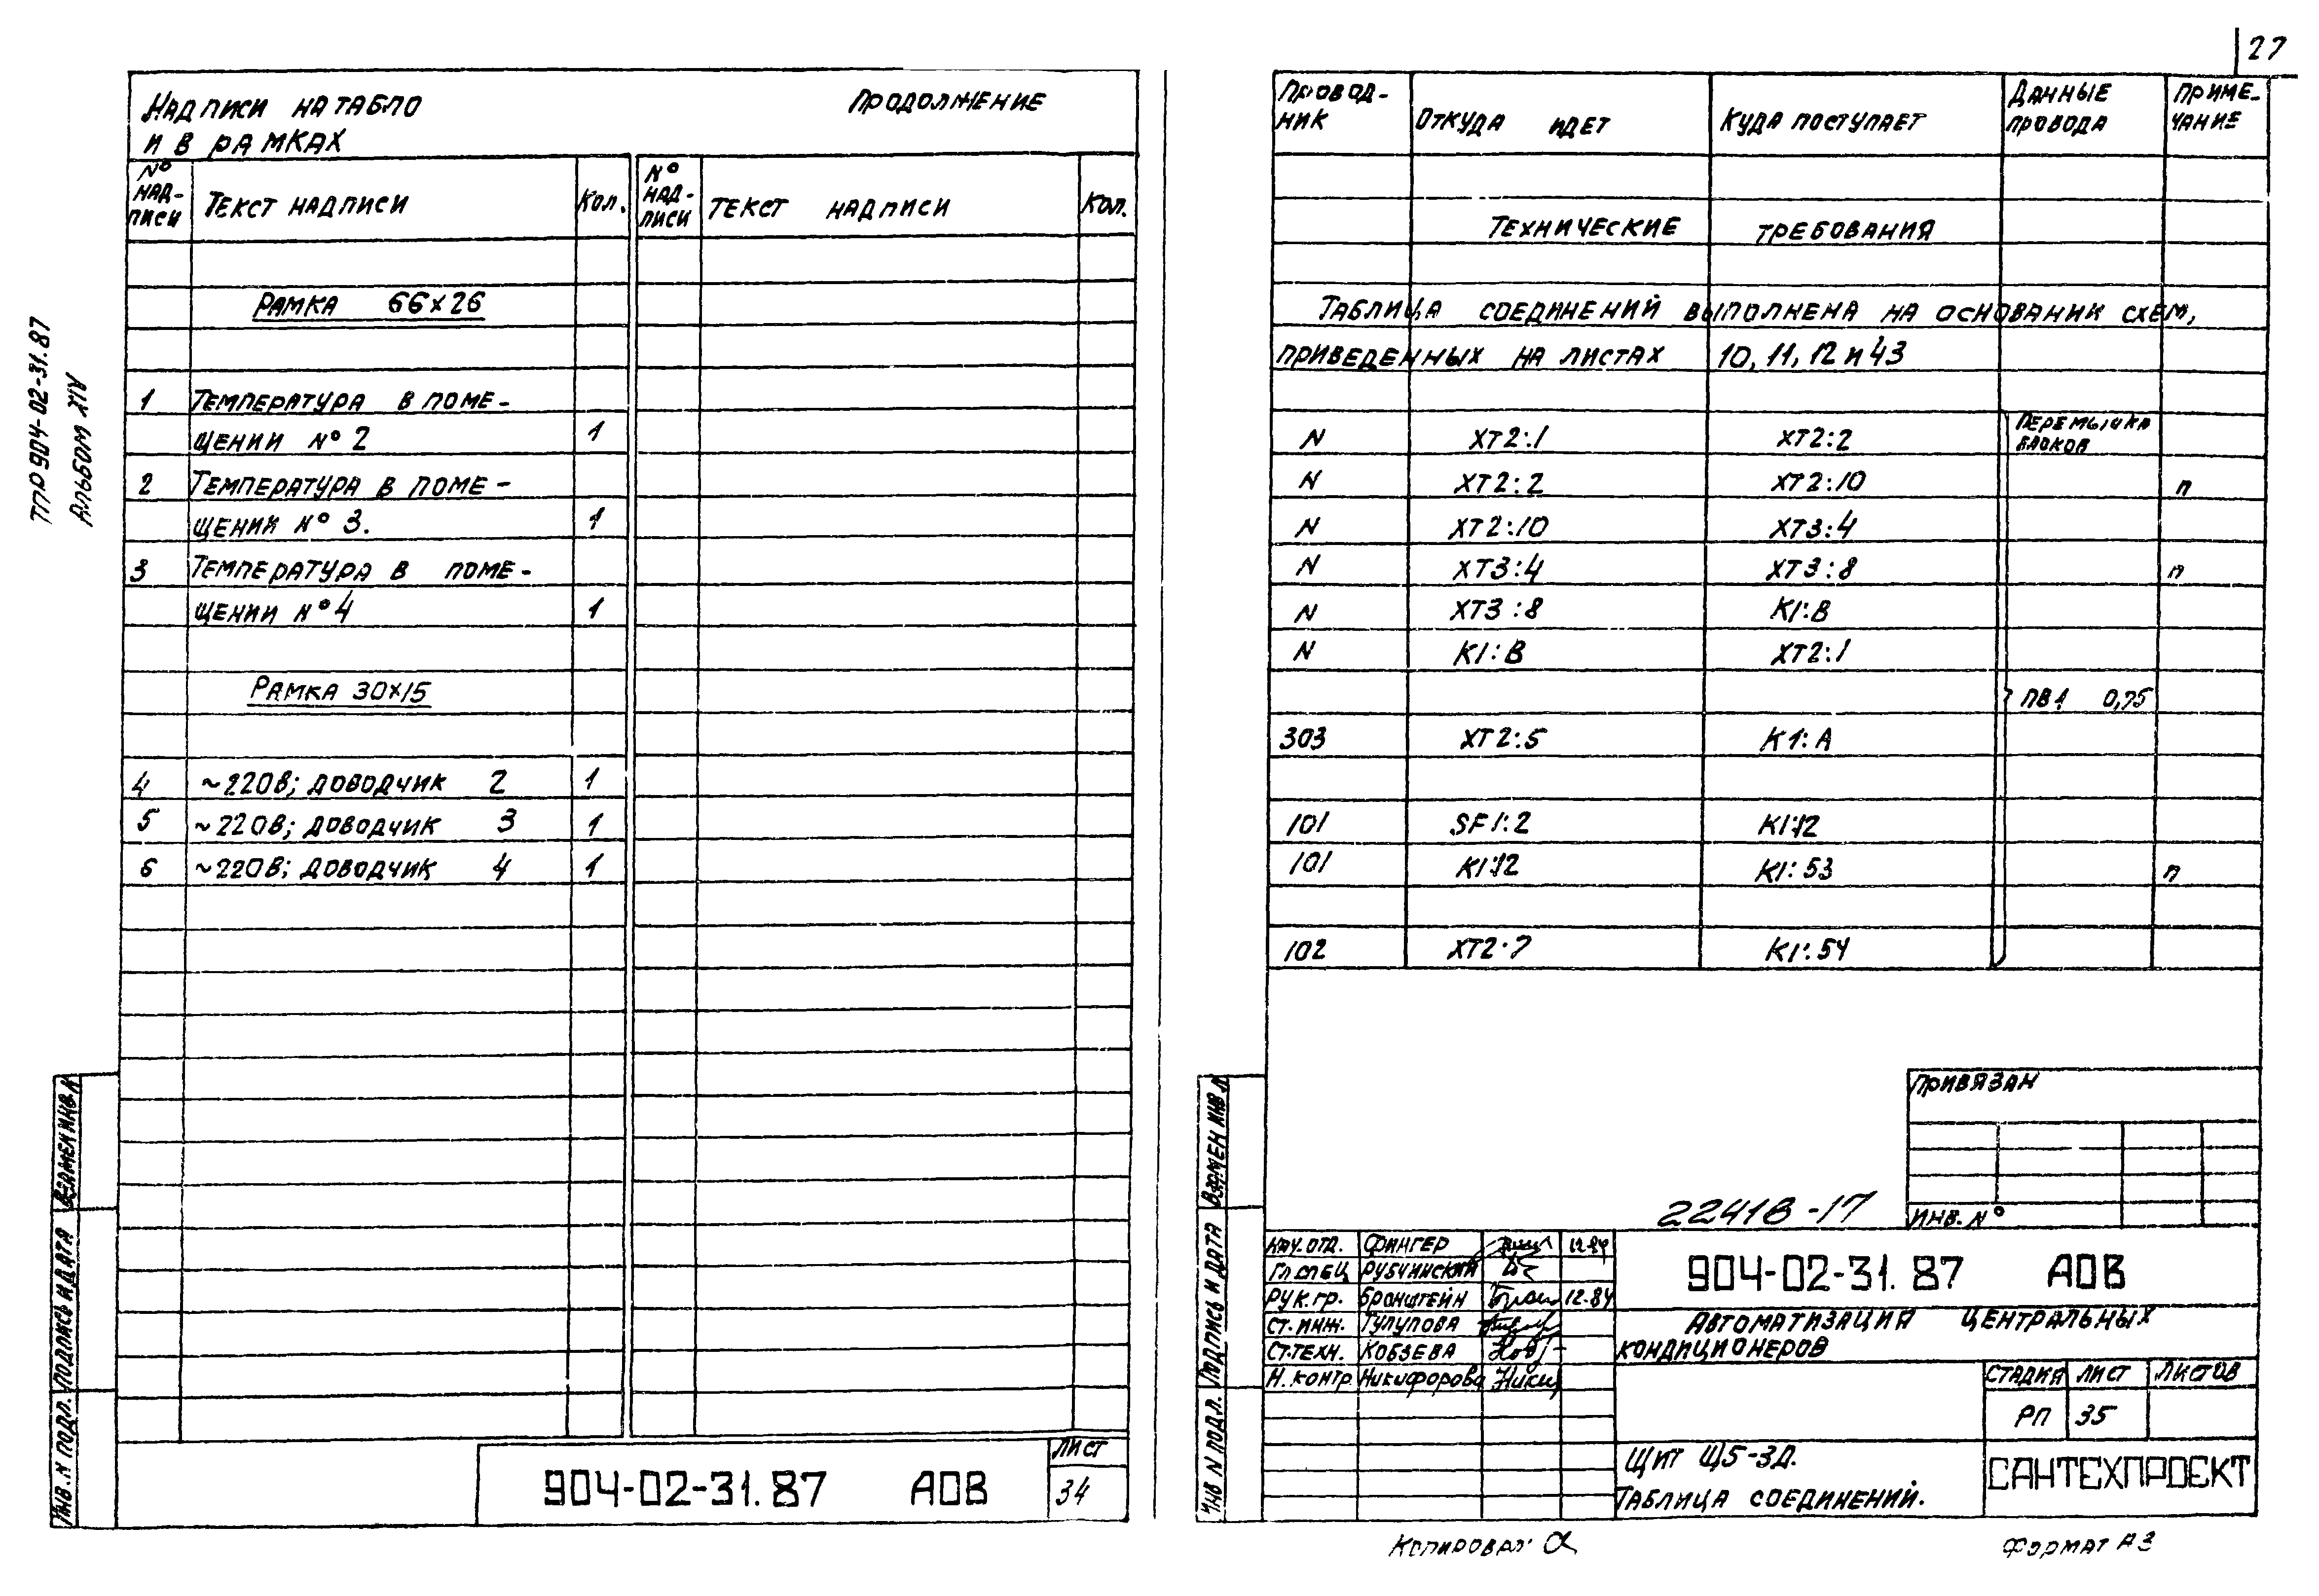 27
ТПР 904-02-31.87
Альбом XIV
Надписи на табло
и в рамках
Продолжение
№ надписи Текст надписи Кол. № надписи Текст надписи Кол.
Рамка 66×26
1 Температура в поме-
щении №2 1
2 Температура в поме-
щении №3. 1
3 Температура в поме-
щении №4 1
Рамка 30×15
4 ~220в; доводчик 2 1
5 ~220в; доводчик 3 1
6 ~220в; доводчик 4 1
Взамен инв. №
Подпись и дата
Инв. № подл.
904-02-31.87 АОВ
Лист
34
Провод-
ник Откуда идет Куда поступает Данные провода Приме-
чание
Технические требования
Таблица соединений выполнена на основании схем,
приведенных на листах 10, 11, 12 и 43
N ХТ2:1 ХТ2:2 Перемычка блоков
N ХТ2:2 ХТ2:10 п
N ХТ2:10 ХТ3:4
N ХТ3:4 ХТ3:8 п
N ХТ3:8 К1:В
N К1:В ХТ2:1
ПВ1 0,75
303 ХТ2:5 К1:А
101 SF1:2 К1:12
101 К1:12 К1:53 п
102 ХТ2:7 К1:54
Привязан
Инв. №
22418-17
Взамен инв №
Подпись и дата
Инв N подл.
Нач. отд. Фингер 12.84
Гл. спец Рубчинский
Рук. гр. Бронштейн 12.84
Ст. инж. Тулупова
Ст. техн. Кобзева
Н. контр Никифорова
904-02-31.87 АОВ
Автоматизация центральных
кондиционеров
Стадия Лист Листов
РП 35
Щит Щ5-3Д.
Таблица соединений.
САНТЕХПРОЕКТ
Копировал:
Формат А3